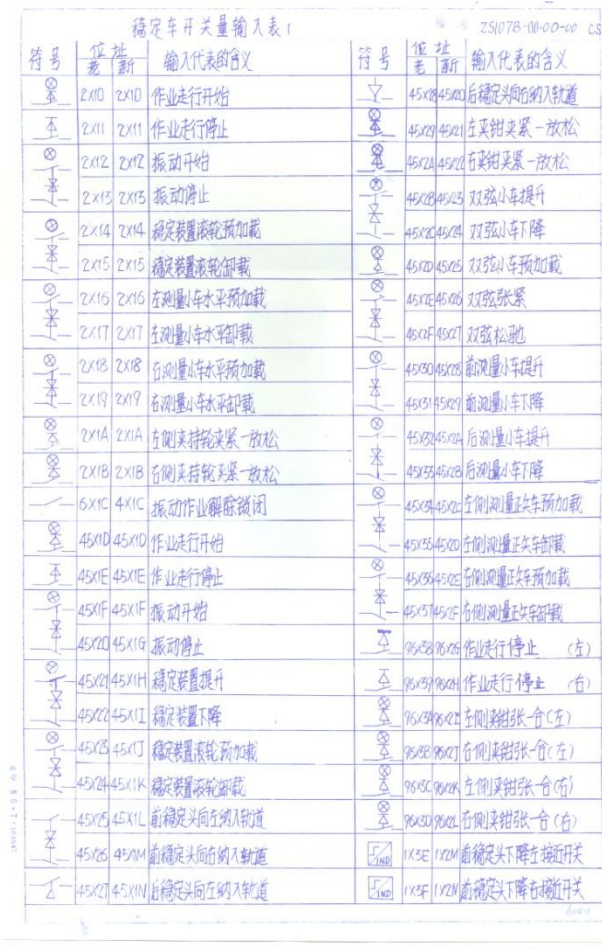 稳定车开关量输入表1
ZS1078-00-00-00 CS
符号 位址 输入代表的含义
老 新
2X10 2X10 作业走行开始
2X11 2X11 作业走行停止
2X12 2X12 振动开始
2X13 2X13 振动停止
2X14 2X14 稳定装置滚轮预加载
2X15 2X15 稳定装置滚轮卸载
2X16 2X16 左测量小车水平预加载
2X17 2X17 左测量小车水平卸载
2X18 2X18 右测量小车水平预加载
2X19 2X19 右测量小车水平卸载
2X1A 2X1A 左侧夹持轮夹紧-放松
2X1B 2X1B 右侧夹持轮夹紧-放松
6X1C 4X1C 振动作业解除锁闭
45X1D 45X1D 作业走行开始
45X1E 45X1E 作业走行停止
45X1F 45X1F 振动开始
45X20 45X1G 振动停止
45X21 45X1H 稳定装置提升
45X22 45X1I 稳定装置下降
45X23 45X1J 稳定装置滚轮预加载
45X24 45X1K 稳定装置滚轮卸载
45X25 45X1L 前稳定头向左纳入轨道
45X26 45X1M 前稳定头向右纳入轨道
45X27 45X1N 后稳定头向左纳入轨道
符号 位址 输入代表的含义
老 新
45X28 45X20 后稳定头向右纳入轨道
45X29 45X21 左夹钳夹紧-放松
45X2A 45X22 右夹钳夹紧-放松
45X2B 45X23 双弦小车提升
45X2C 45X24 双弦小车下降
45X2D 45X25 双弦小车预加载
45X2E 45X26 双弦张紧
45X2F 45X27 双弦松弛
45X30 45X28 前测量小车提升
45X31 45X29 前测量小车下降
45X32 45X2A 后测量小车提升
45X33 45X2B 后测量小车下降
45X34 45X2C 左侧测量正矢车预加载
45X35 45X2D 左侧测量正矢车卸载
45X36 45X2E 右侧测量正矢车预加载
45X37 45X2F 右侧测量正矢车卸载
96X38 96X2G 作业走行停止 (左)
96X39 96X2H 作业走行停止 (右)
96X3A 96X2I 左侧夹钳张-合(左)
96X3B 96X2J 右侧夹钳张-合(左)
96X3C 96X2K 左侧夹钳张-合(右)
96X3D 96X2L 右侧夹钳张-合(右)
IND 1X3E 1X2M 前稳定头下降左接近开关
IND 1X3F 1X2N 前稳定头下降右接近开关